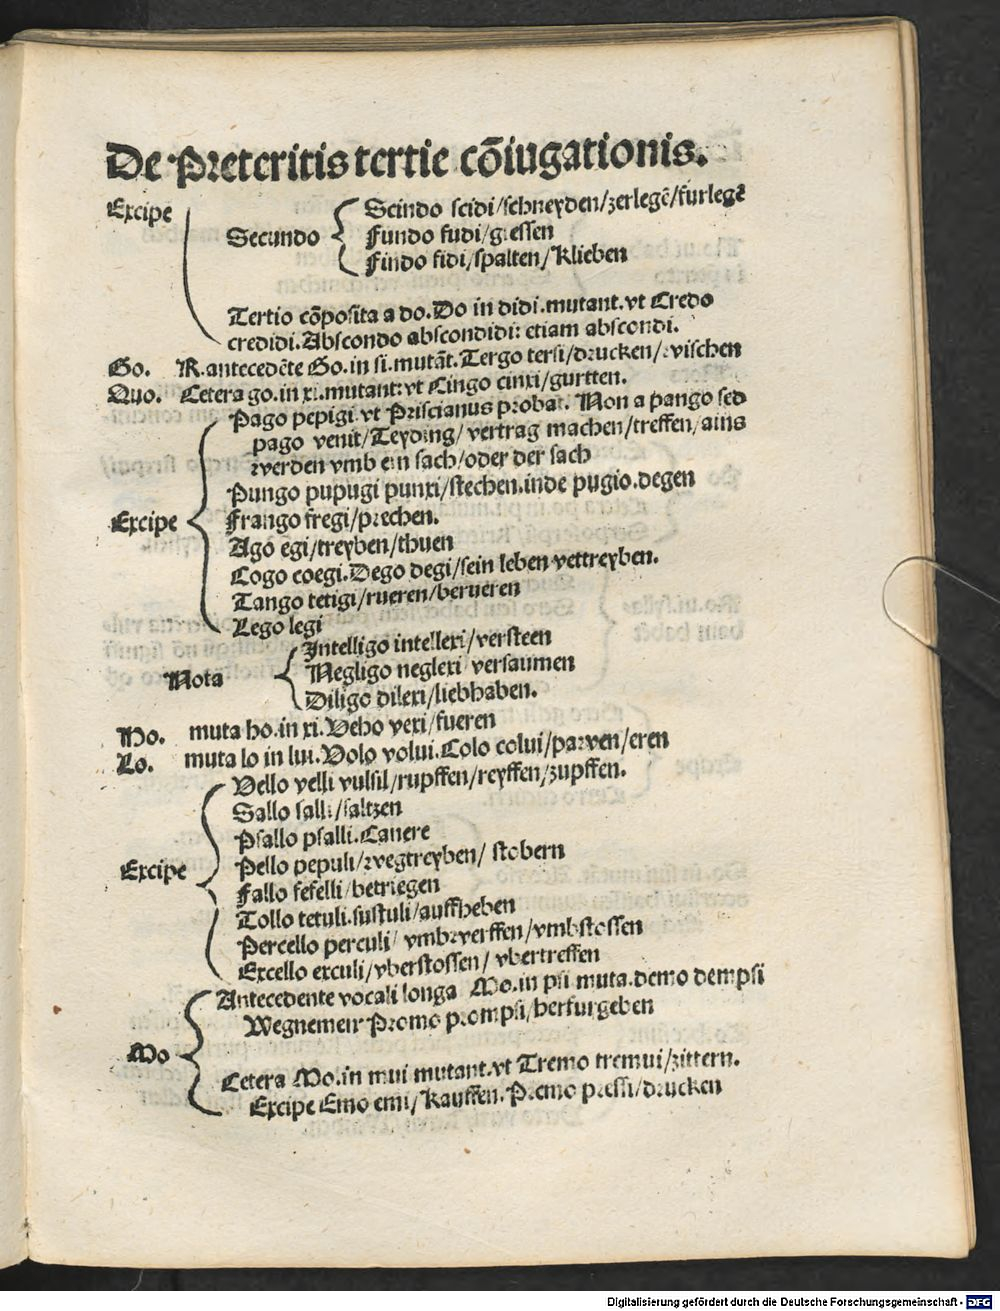 De Preteritis tertie cōiugationis.
Excipe
Secundo
Scindo scidi/schneyden/zerlegē/furlegē
Fundo fudi/giessen
Findo fidi/spalten/klieben
Tertio cōposita a do. Do in didi. mutant. vt Credo
credidi. Abscondo abscondidi: etiam abscondi.
Go. R. antecedēte Go. in si. mutāt. Tergo tersi/drucken/wischen
Quo. Cetera go. in xi. mutant: vt Cingo cinxi/gurtten.
Excipe
Pago pepigi vt Priscianus probat. Non a pango sed
pago venit/Teyding/vertrag machen/treffen/ains
werden vmb ein sach/oder der sach
Pungo pupugi punxi/stechen. inde pugio. degen
Frango fregi/prechen.
Ago egi/treyben/thuen
Cogo coegi. Dego degi/sein leben vettreyben.
Tango tetigi/rueren/berueren
Lego legi
Nota
Intelligo intellexi/versteen
Negligo neglexi versaumen
Diligo dilexi/liebhaben.
Ho. muta ho. in xi. Veho vexi/fueren
Lo. muta lo in lui. Volo volui. Colo colui/pawen/eren
Excipe
Vello velli vulsi/rupffen/reyffen/zupffen.
Sallo salli/saltzen
Psallo psalli. Canere
Pello pepuli/wegtreyben/stobern
Fallo fefelli/betriegen
Tollo tetuli. sustuli/auffheben
Percello perculi/vmbwerffen/vmbstossen
Excello exculi/vberstossen/vbertreffen
Mo
Antecedente vocali longa Mo. in psi muta. demo dempsi
Wegnemen Promo prompsi/herfurgeben
Cetera Mo. in mui mutant. vt Tremo tremui/zittern.
Excipe Emo emi/kauffen. Premo pressi/drucken
Digitalisierung gefördert durch die Deutsche Forschungsgemeinschaft - DFG